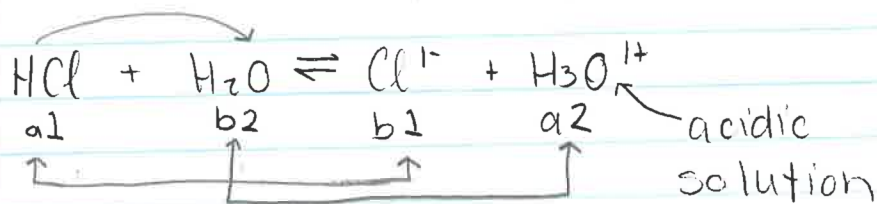 HCl + H₂O ⇌ Cl¹⁻ + H₃O¹⁺
a1 b2 b1 a2 acidic
solution